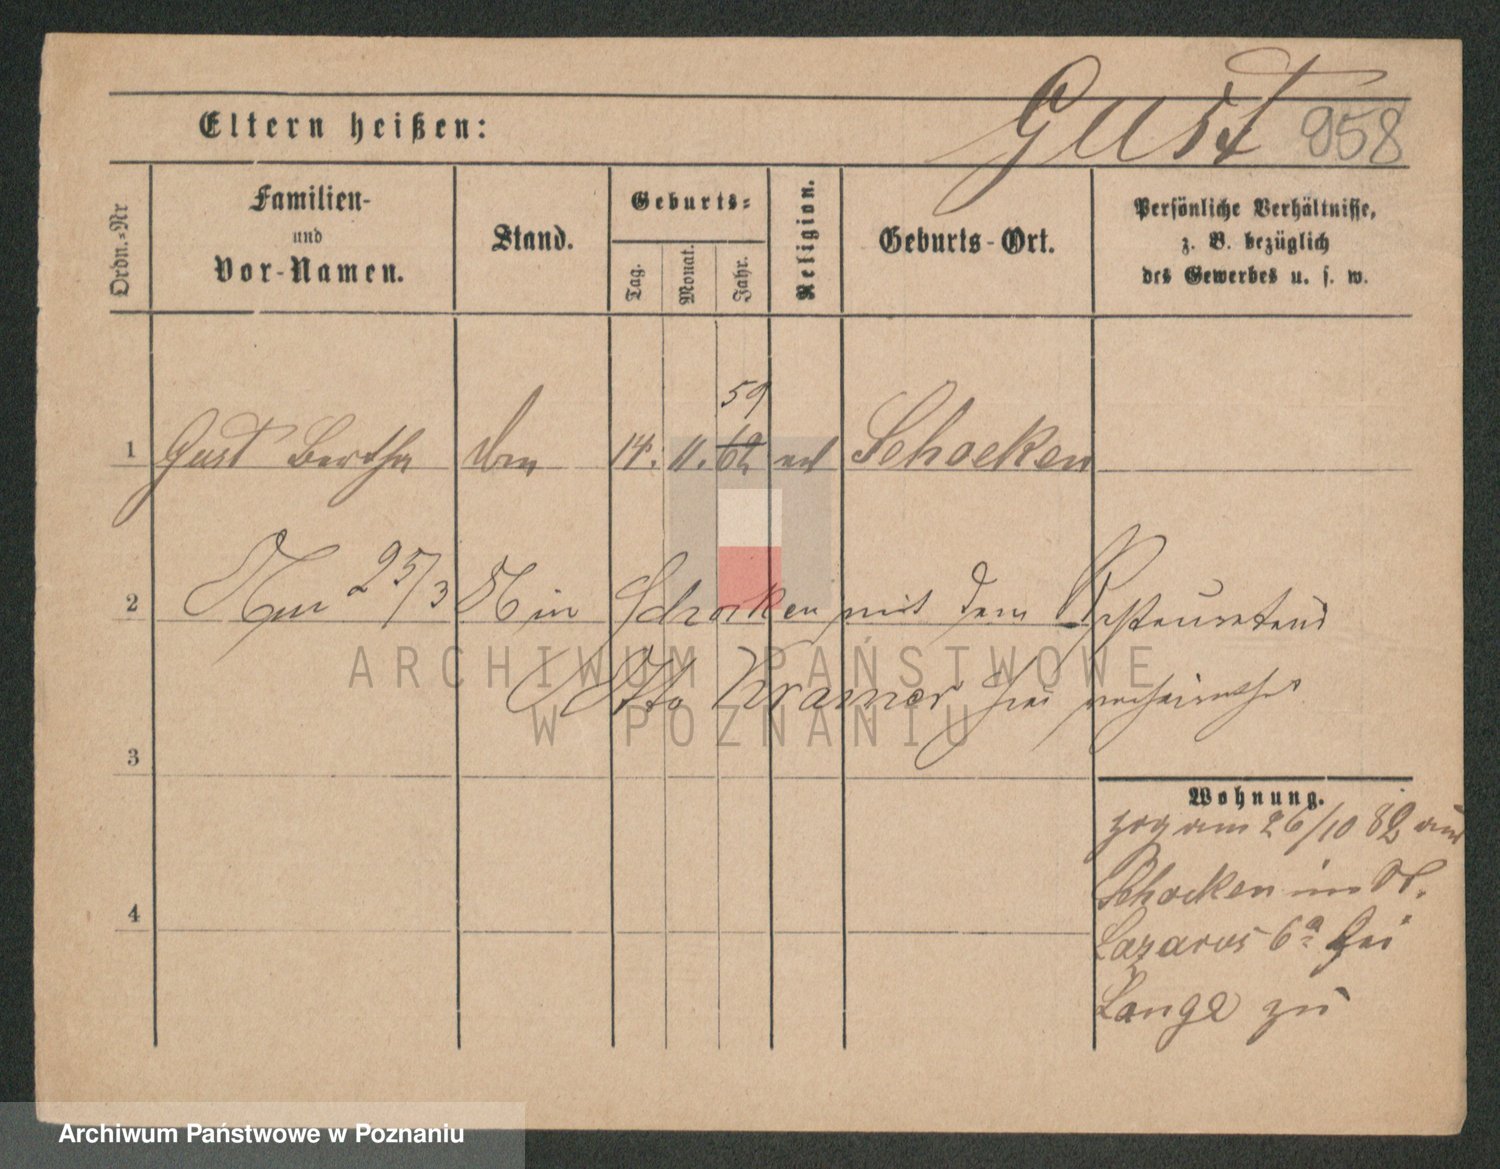 Gust 958
Eltern heißen:
Ordn.-Nr
Familien-
und
Vor-Namen.
Stand.
Geburts-
Tag.
Monat.
Jahr.
Religion.
Geburts-Ort.
Persönliche Verhältnisse,
z. B. bezüglich
des Gewerbes u. s. w.
59
1 Gust Bertha 14. 11. 62 Schocken
2 25/3 in Schocken mit dem Restaurateur
Otto Kramer hier verheirathet
3
Wohnung.
zog am 26/10 82 aus
Schocken in St.
4
Lazarus 6a bei
Lange zu
ARCHIWUM PAŃSTWOWE
W POZNANIU
Archiwum Państwowe w Poznaniu